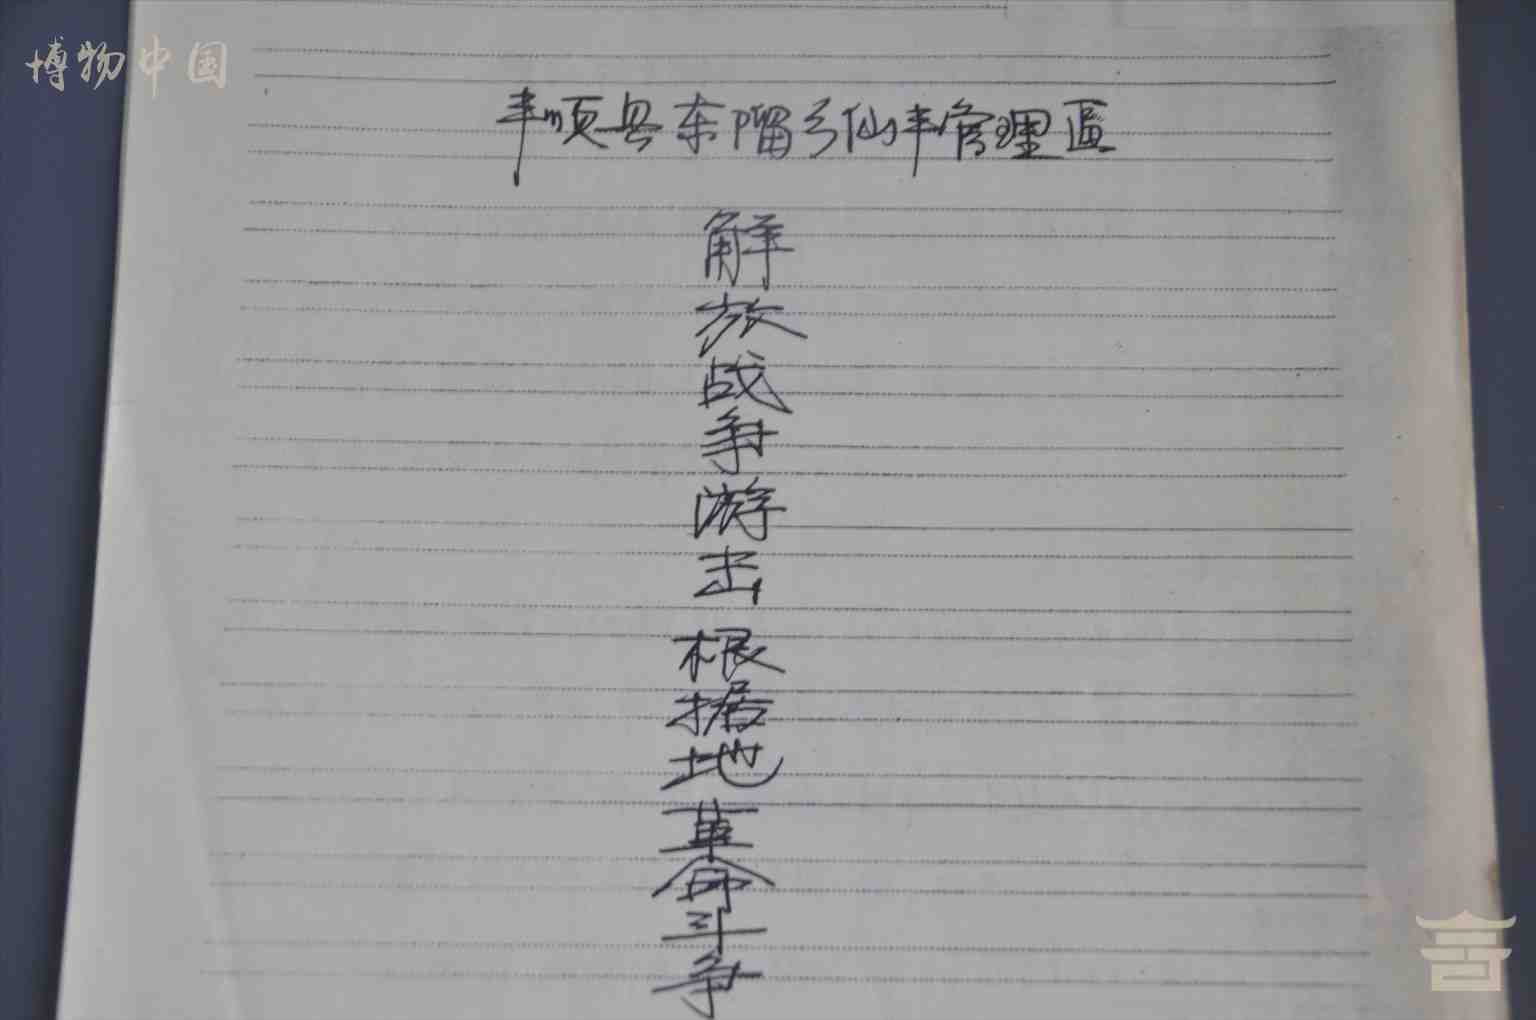 博物中国
丰顺县东𨻧乡仙丰管理區
解放战争游击根据地革命斗争